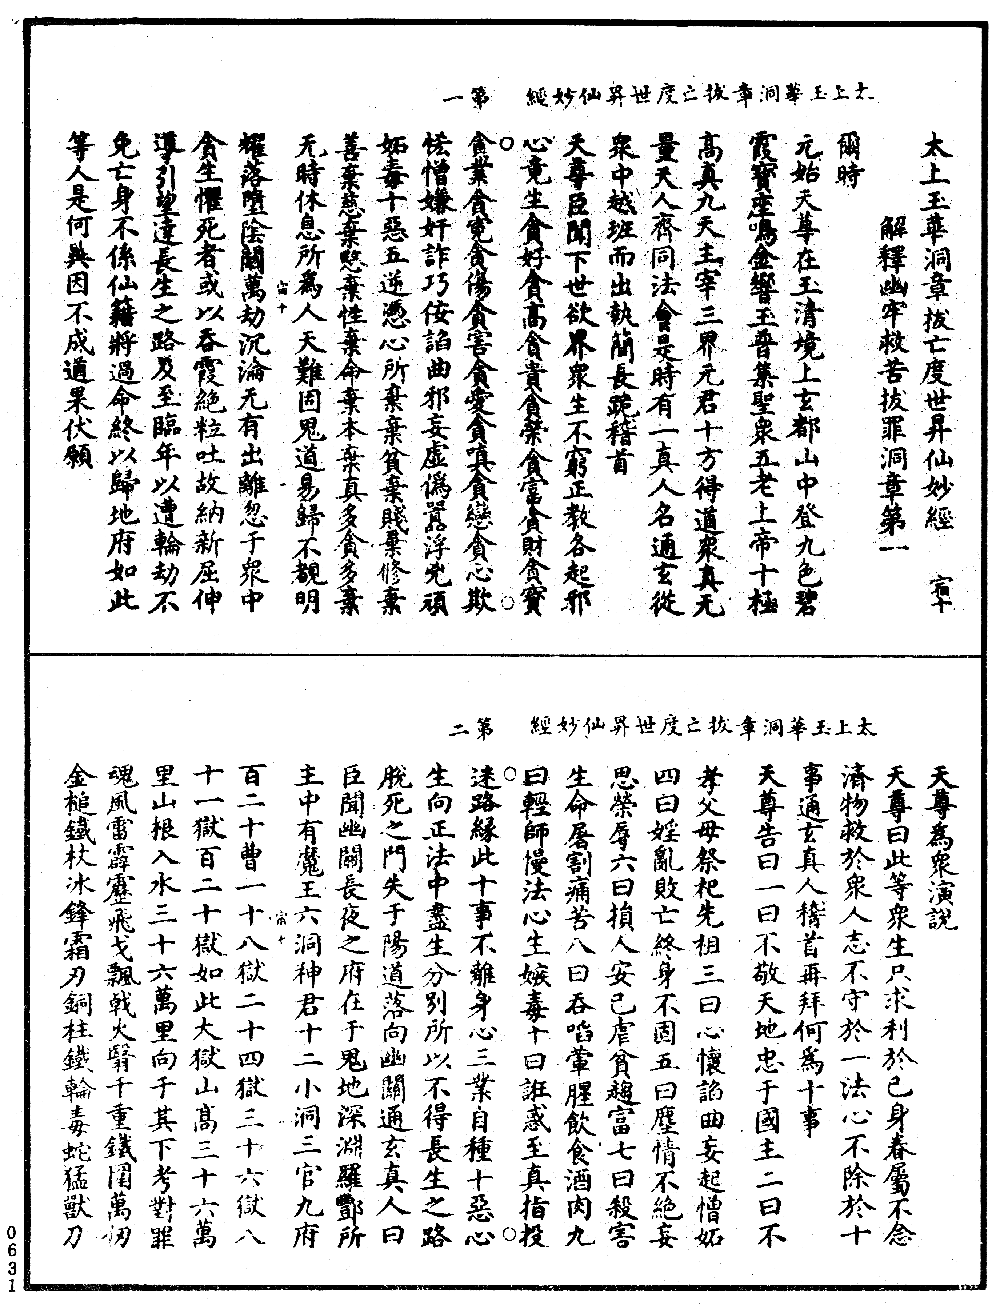 太上玉華洞章拔亡度世昇仙妙經　第一
太上玉華洞章拔亡度世昇仙妙經　宿十
解釋幽牢救苦拔罪洞章第一
爾時
元始天尊在玉清境上玄都山中登九色碧
霞寶座鳴金響玉普集聖衆五老上帝十極
高真九天主宰三界元君十方得道衆真无
量天人齊同法會是時有一真人名通玄從
衆中越班而出執簡長跪稽首
天尊臣聞下世欲界衆生不窮正教各起邪
心竟生貪好貪高貪貴貪榮貪富貪財貪寶
貪業貪冤貪傷貪害貪愛貪嗔貪戀貪心欺
恡憎嫌奸詐巧佞諂曲邪妄虛僞嚚浮兇頑
妬毒十惡五逆憑心所棄棄貧棄賤棄修棄
善棄慈棄愍棄性棄命棄本棄真多貪多棄
无時休息所爲人天難固鬼道易歸不覩明
宿十
耀落墮陰關萬劫沉淪无有出離忽于衆中
貪生懼死者或以吞霞絕粒吐故納新屈伸
導引望達長生之路及至臨年以遭輪劫不
免亡身不係仙籍將過命終以歸地府如此
等人是何與因不成道果伏願
太上玉華洞章拔亡度世昇仙妙經　第二
天尊爲衆演說
天尊曰此等衆生只求利於已身眷屬不念
濟物救於衆人志不守於一法心不除於十
事通玄真人稽首再拜何爲十事
天尊告曰一曰不敬天地忠于國主二曰不
孝父母祭祀先祖三曰心懷諂曲妄起憎妬
四曰婬亂敗亡終身不固五曰塵情不絕妄
思榮辱六曰損人安已虐貧趨富七曰殺害
生命屠割痛苦八曰吞啗葷腥飲食酒肉九
曰輕師慢法心生嫉毒十曰誑惑至真指投
迷路緣此十事不離身心三業自種十惡心
生向正法中盡生分別所以不得長生之路
脫死之門失于陽道落向幽關通玄真人曰
臣聞幽關長夜之府在于鬼地深淵羅酆所
主中有魔王六洞神君十二小洞三官九府
宿十
百二十曹一十八獄二十四獄三十六獄八
十一獄百二十獄如此大獄山高三十六萬
里山根入水三十六萬里向于其下考對罪
魂風雷霹靂飛戈飄戟火翳千重鐵圍萬仞
金槌鐵杖冰鋒霜刃銅柱鐵輪毒蛇猛獸刀
0631